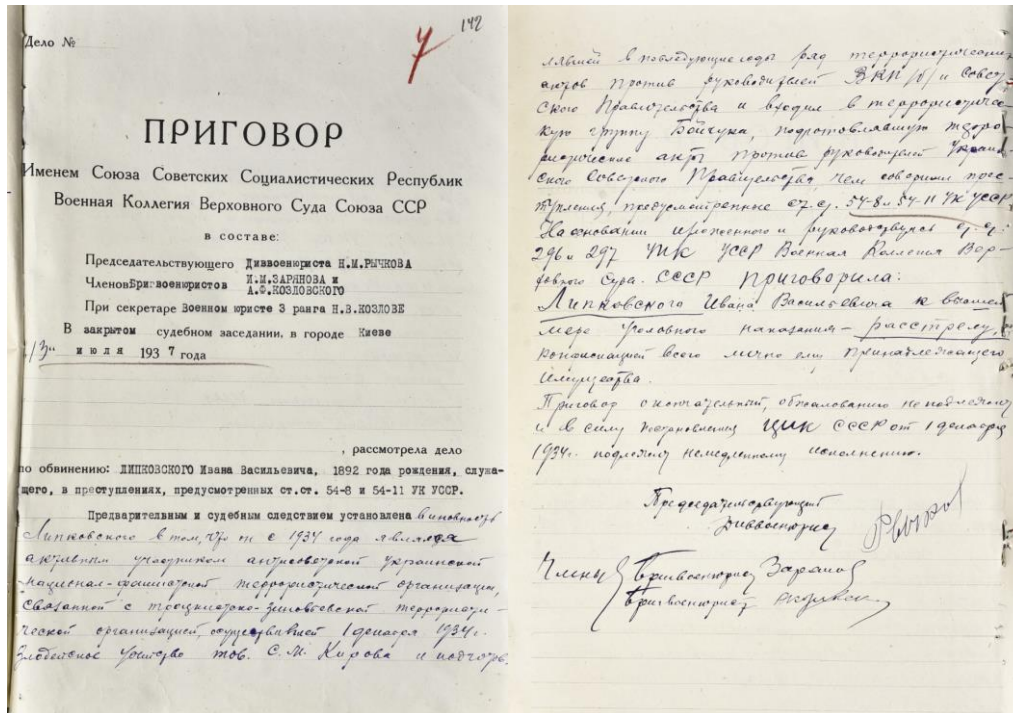 142
7
Дело №
ПРИГОВОР
Именем Союза Советских Социалистических Республик
Военная Коллегия Верховного Суда Союза ССР
в составе:
Председательствующего Диввоенюриста Н.М.РЫЧКОВА
Членов Бригвоенюристов И.М.ЗАРЯНОВА и
А.Ф.КОЗЛОВСКОГО
При секретаре Военном юристе 3 ранга Н.В.КОЗЛОВЕ
В закрытом судебном заседании, в городе Киеве
"13" июля 1937 года
, рассмотрела дело
по обвинению: ЛИПКОВСКОГО Ивана Васильевича, 1892 года рождения, служа-
щего, в преступлениях, предусмотренных ст.ст. 54-8 и 54-11 УК УССР.
Предварительным и судебным следствием установлена виновность
Липковского в том, что он с 1934 года являлся
активным участником антисоветской украинской
национал-фашистской террористической организации,
связанной с троцкистско-зиновьевской террористи-
ческой организацией, осуществившей 1 декабря 1934 г.
злодейское убийство тов. С.М. Кирова и подготов-
лявшей в последующие годы ряд террористических
актов против руководителей ВКП/б/ и Совет-
ского Правительства и входил в террористичес-
кую группу Бойчука, подготовлявшую терро-
ристические акты против руководителей Украин-
ского Советского Правительства, чем совершил прес-
тупления, предусмотренные ст.ст. 54-8 и 54-11 УК УССР.
На основании изложенного и руководствуясь ст.ст.
296 и 297 УПК УССР Военная Коллегия Вер-
ховного Суда СССР приговорила:
Липковского Ивана Васильевича к высшей
мере уголовного наказания - расстрелу, с
конфискацией всего лично ему принадлежащего
имущества.
Приговор окончательный, обжалованию не подлежит
и в силу постановления ЦИК СССР от 1 декабря
1934 г. подлежит немедленному исполнению.
Председательствующий
Диввоенюрист Рычков
Члены Бригвоенюрист Зарянов
Бригвоенюрист